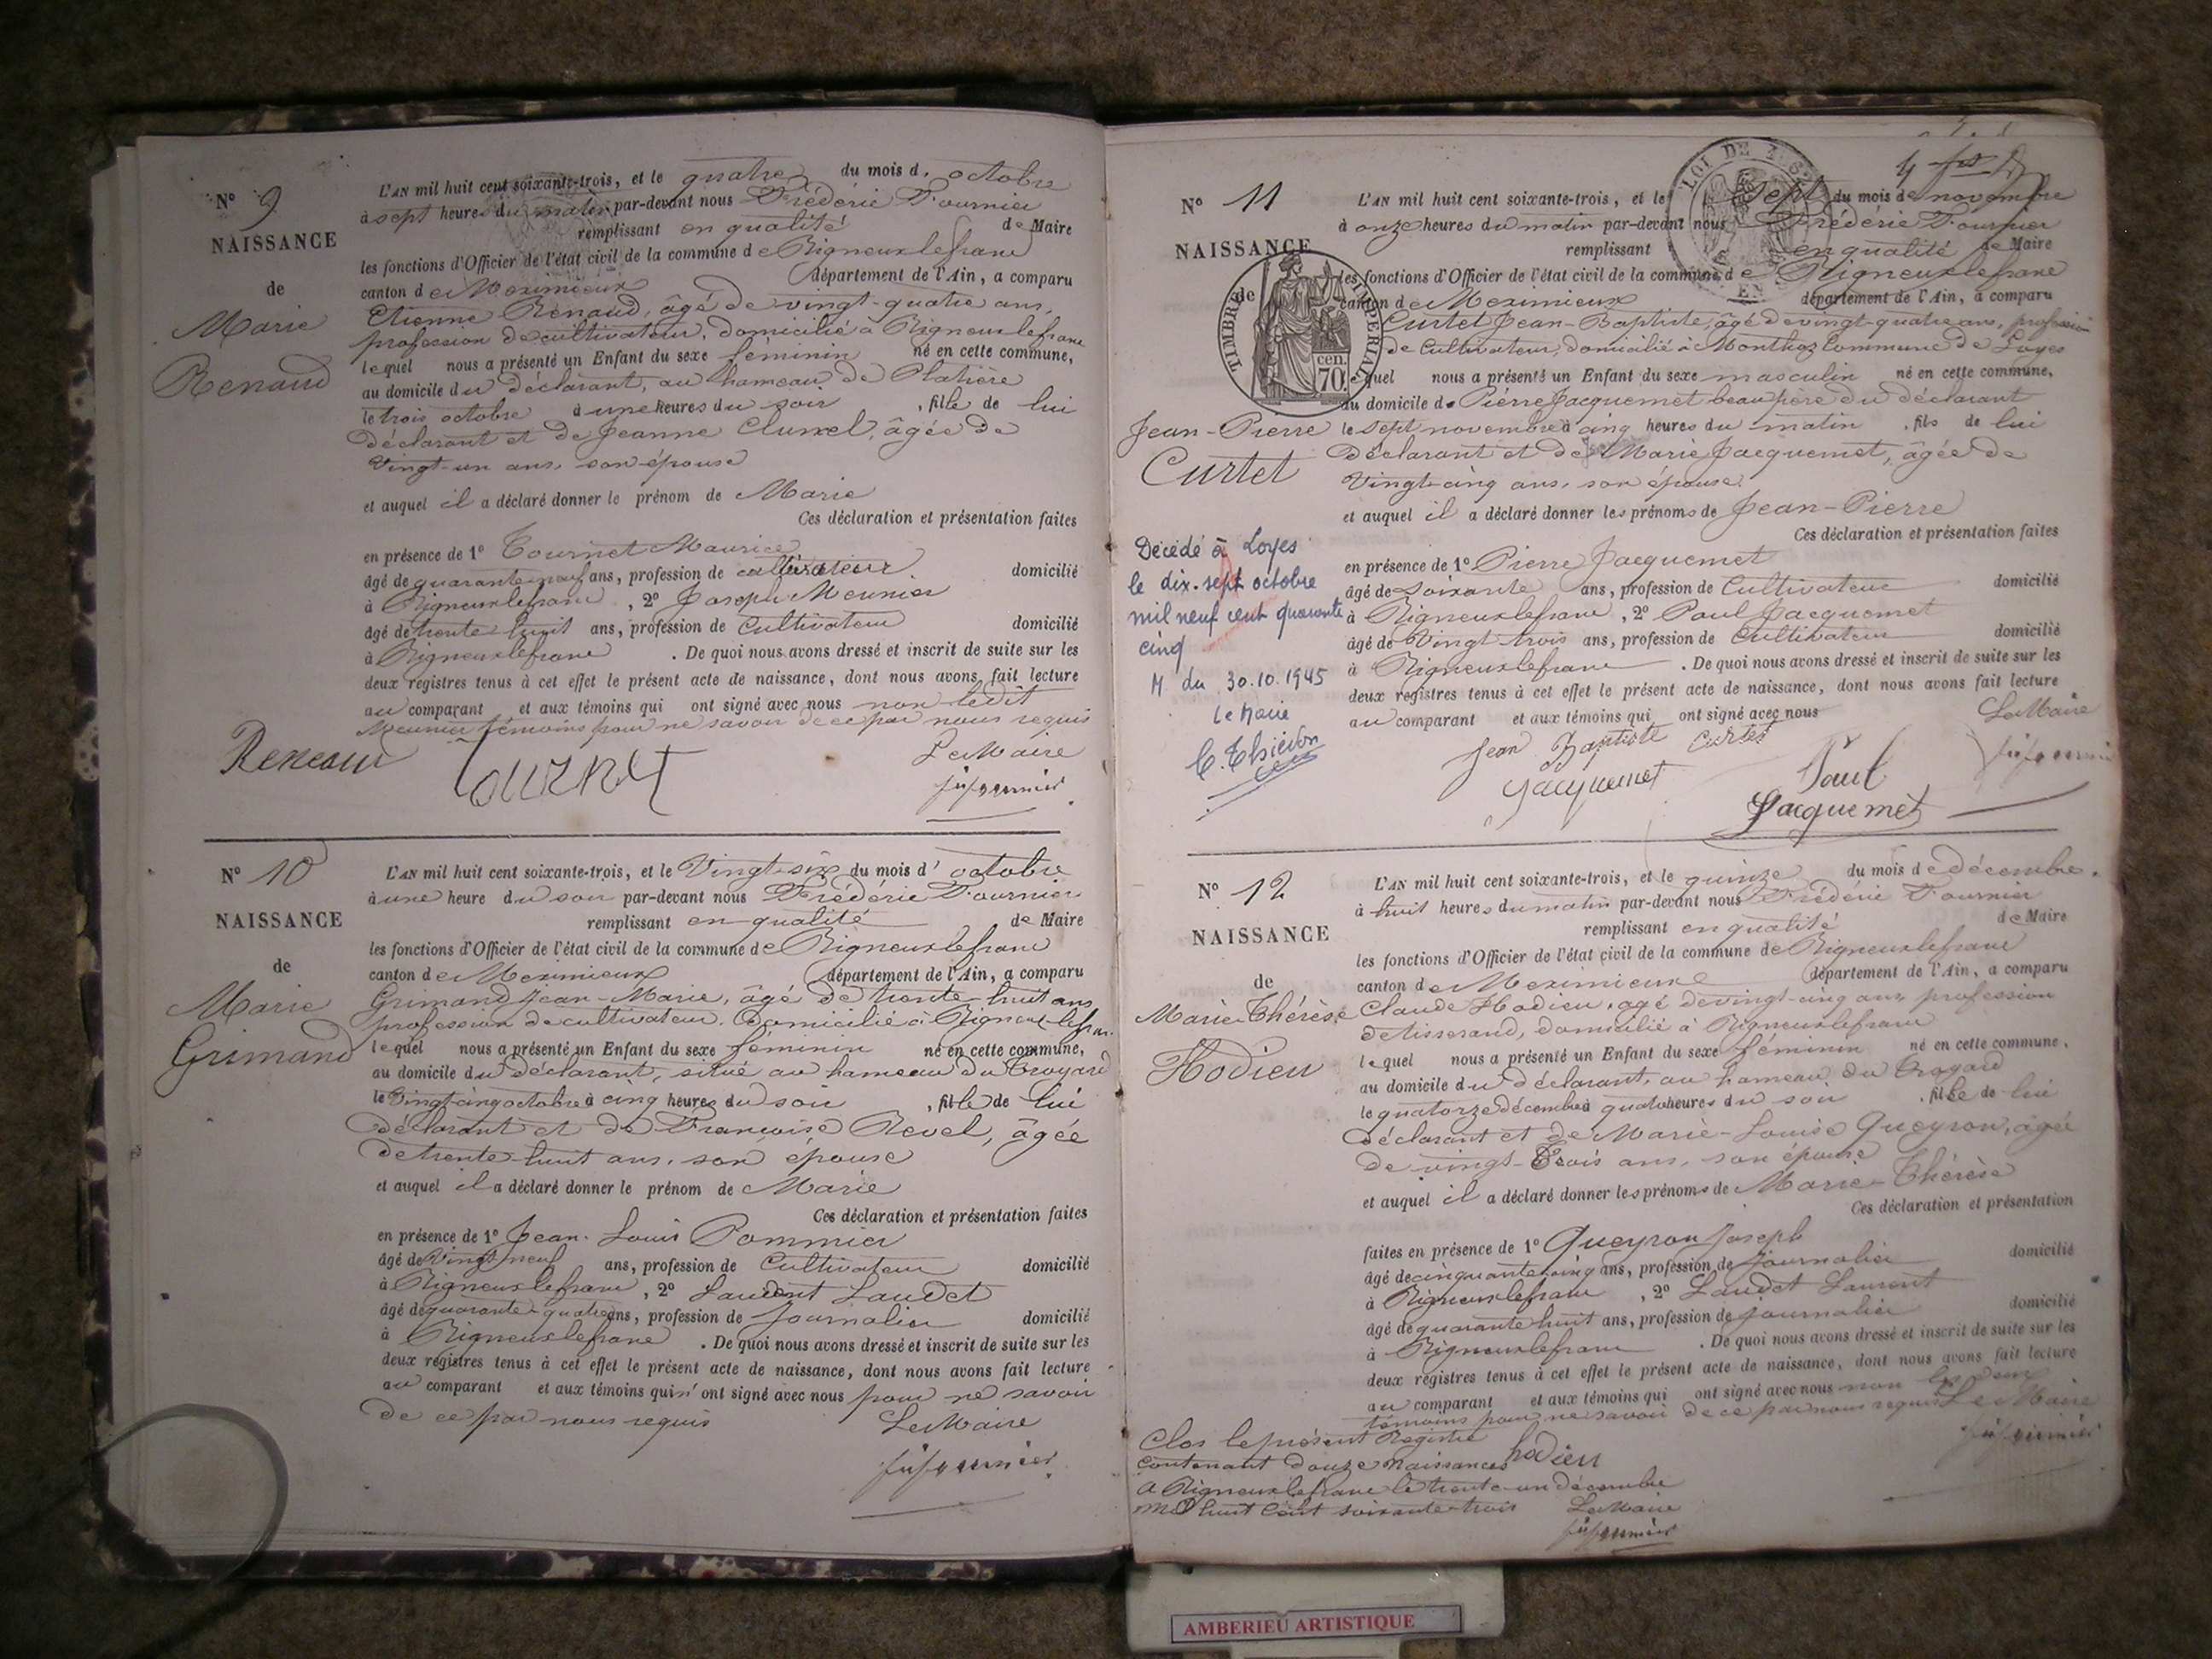 N° 9
NAISSANCE
de
Marie
Renaud
L'AN mil huit cent soixante-trois, et le quatre du mois d' octobre
à sept heures du matin par-devant nous Frédéric Fournier
remplissant en qualité de Maire
les fonctions d'Officier de l'état civil de la commune de Rigneuxlefranc
canton de Meximieux département de l'Ain, a comparu
Etienne Renaud, âgé de vingt-quatre ans,
profession de cultivateur, domicilié à Rigneuxlefranc
lequel nous a présenté un Enfant du sexe féminin né en cette commune,
au domicile du déclarant, au hameau de Platière
le trois octobre à une heures du soir , fille de lui
déclarant et de Jeanne , âgée de
Vingt-un ans, son épouse
et auquel il a déclaré donner le prénom de Marie
Ces déclaration et présentation faites
en présence de 1° Tournet Maurice
âgé de quarante-neuf ans, profession de cultivateur domicilié
à Rigneuxlefranc , 2° Joseph Meunier
âgé de trente-huit ans, profession de Cultivateur domicilié
à Rigneuxlefranc . De quoi nous avons dressé et inscrit de suite sur les
deux registres tenus à cet effet le présent acte de naissance, dont nous avons fait lecture
au comparant et aux témoins qui ont signé avec nous non ledit
Meunier témoins pour ne savoir de ce par nous requis
Le Maire
Renaud
N° 10
NAISSANCE
de
Marie
Grimand
L'AN mil huit cent soixante-trois, et le Vingt-six du mois d' octobre
à une heure du soir par-devant nous Frédéric Fournier
remplissant en qualité de Maire
les fonctions d'Officier de l'état civil de la commune de Rigneuxlefranc
canton de Meximieux département de l'Ain, a comparu
Grimand Jean-Marie, âgé de trente-huit ans
profession de cultivateur, domicilié à Rigneuxlefranc
lequel nous a présenté un Enfant du sexe féminin né en cette commune,
au domicile du déclarant, situé au hameau du Croyard
le Vingt-cinq octobre à cinq heures du soir , fille de lui
déclarant et de Françoise Revel, âgée
de trente-huit ans, son épouse
et auquel il a déclaré donner le prénom de Marie
Ces déclaration et présentation faites
en présence de 1° Jean-Louis Pommier
âgé de Vingt-neuf ans, profession de Cultivateur domicilié
à Rigneuxlefranc , 2° Laurent Laudet
âgé de quarante-quatre ans, profession de journalier domicilié
à Rigneuxlefranc . De quoi nous avons dressé et inscrit de suite sur les
deux registres tenus à cet effet le présent acte de naissance, dont nous avons fait lecture
au comparant et aux témoins qui n'ont signé avec nous pour ne savoir
de ce par nous requis
Le Maire
N° 11
NAISSANCE
de
TIMBRE IMPERIAL
70 cen.
Jean-Pierre
Curtet
Décédé à Loyes
le dix-sept octobre
mil neuf cent quarante
cinq
M du 30.10.1945
le Maire
L'AN mil huit cent soixante-trois, et le sept du mois de novembre
à onze heures du matin par-devant nous Frédéric Fournier
remplissant en qualité de Maire
les fonctions d'Officier de l'état civil de la commune de Rigneuxlefranc
canton de Meximieux département de l'Ain, a comparu
Curtet Jean-Baptiste, âgé de vingt-quatre ans, profession
de Cultivateur, domicilié à Monthoz Commune de Loyes
lequel nous a présenté un Enfant du sexe masculin né en cette commune,
au domicile de Pierre Jacquemet beau père du déclarant
le sept novembre à cinq heures du matin , fils de lui
déclarant et de Marie Jacquemet, âgée de
Vingt-cinq ans, son épouse
et auquel il a déclaré donner les prénoms de Jean-Pierre
Ces déclaration et présentation faites
en présence de 1° Pierre Jacquemet
âgé de soixante ans, profession de Cultivateur domicilié
à Rigneuxlefranc , 2° Paul Jacquemet
âgé de Vingt-trois ans, profession de Cultivateur domicilié
à Rigneuxlefranc . De quoi nous avons dressé et inscrit de suite sur les
deux registres tenus à cet effet le présent acte de naissance, dont nous avons fait lecture
au comparant et aux témoins qui ont signé avec nous
Le Maire
Jean Baptiste Curtet
Jacquemet
Paul
Jacquemet
N° 12
NAISSANCE
de
Marie-Thérèse
Hodieu
L'AN mil huit cent soixante-trois, et le quinze du mois de décembre
à huit heures du matin par-devant nous Frédéric Fournier
remplissant en qualité de Maire
les fonctions d'Officier de l'état civil de la commune de Rigneuxlefranc
canton de Meximieux département de l'Ain, a comparu
Claude Hodieu, âgé de vingt-cinq ans profession
de tisserand, domicilié à Rigneuxlefranc
lequel nous a présenté un Enfant du sexe féminin né en cette commune,
au domicile du déclarant, au hameau du Croyard
le quatorze décembre à quatre heures du soir , fille de lui
déclarant et de Marie-Louise Queyron, âgée
de vingt-trois ans, son épouse
et auquel il a déclaré donner les prénoms de Marie-Thérèse
Ces déclaration et présentation
faites en présence de 1° Queyron Joseph
âgé de cinquante-cinq ans, profession de journalier domicilié
à Rigneuxlefranc , 2° Laudet Laurent
âgé de quarante-huit ans, profession de journalier domicilié
à Rigneuxlefranc . De quoi nous avons dressé et inscrit de suite sur les
deux registres tenus à cet effet le présent acte de naissance, dont nous avons fait lecture
au comparant et aux témoins qui ont signé avec nous non les deux
témoins pour ne savoir de ce par nous requis Le Maire
hodieu
Clos le présent Registre
contenant douze naissances
A Rigneuxlefranc le trente-un décembre
mil huit cent soixante-trois
Le Maire
AMBERIEU ARTISTIQUE